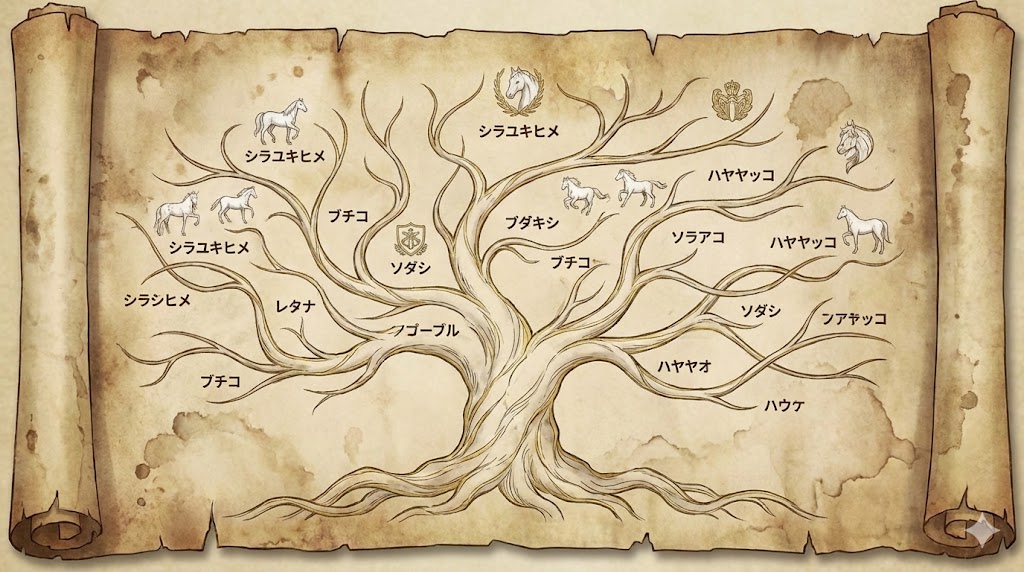 シラユキヒメ
シラユキヒメ
ハヤヤッコ
ブチコ
ブダキシ
シラユキヒメ
ソラアコ
ハヤヤッコ
ソダシ
ブチコ
シラシヒメ
レタナ
ソダシ
ゴーブル
アヤッコ
ハヤヤオ
ブチコ
ハウケ